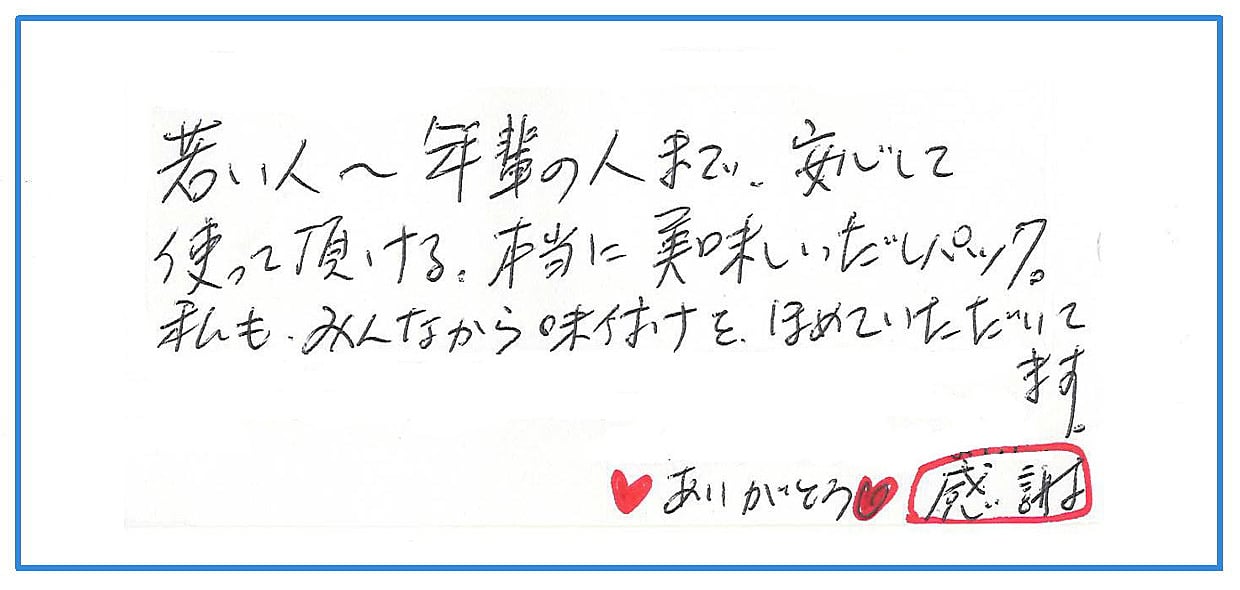 若い人～年輩の人まで、安心して
使って頂ける、本当に美味しいだしパック。
私も、みんなから味付けを、ほめていただいて
ます。
♥ありがとう♥ 感謝